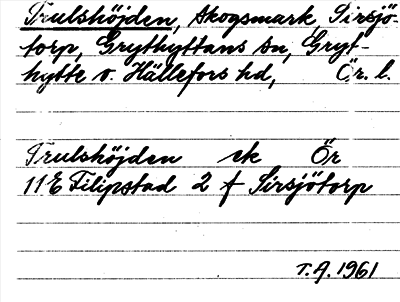 Trulshöjden, skogsmark, Sirsjö-
torp, Grythyttans sn, Gryt-
hytte o. Hällefors hd, Ör. l.
Trulshöjden sk Ör
11E Filipstad 2 f Sirsjötorp
T.A. 1961